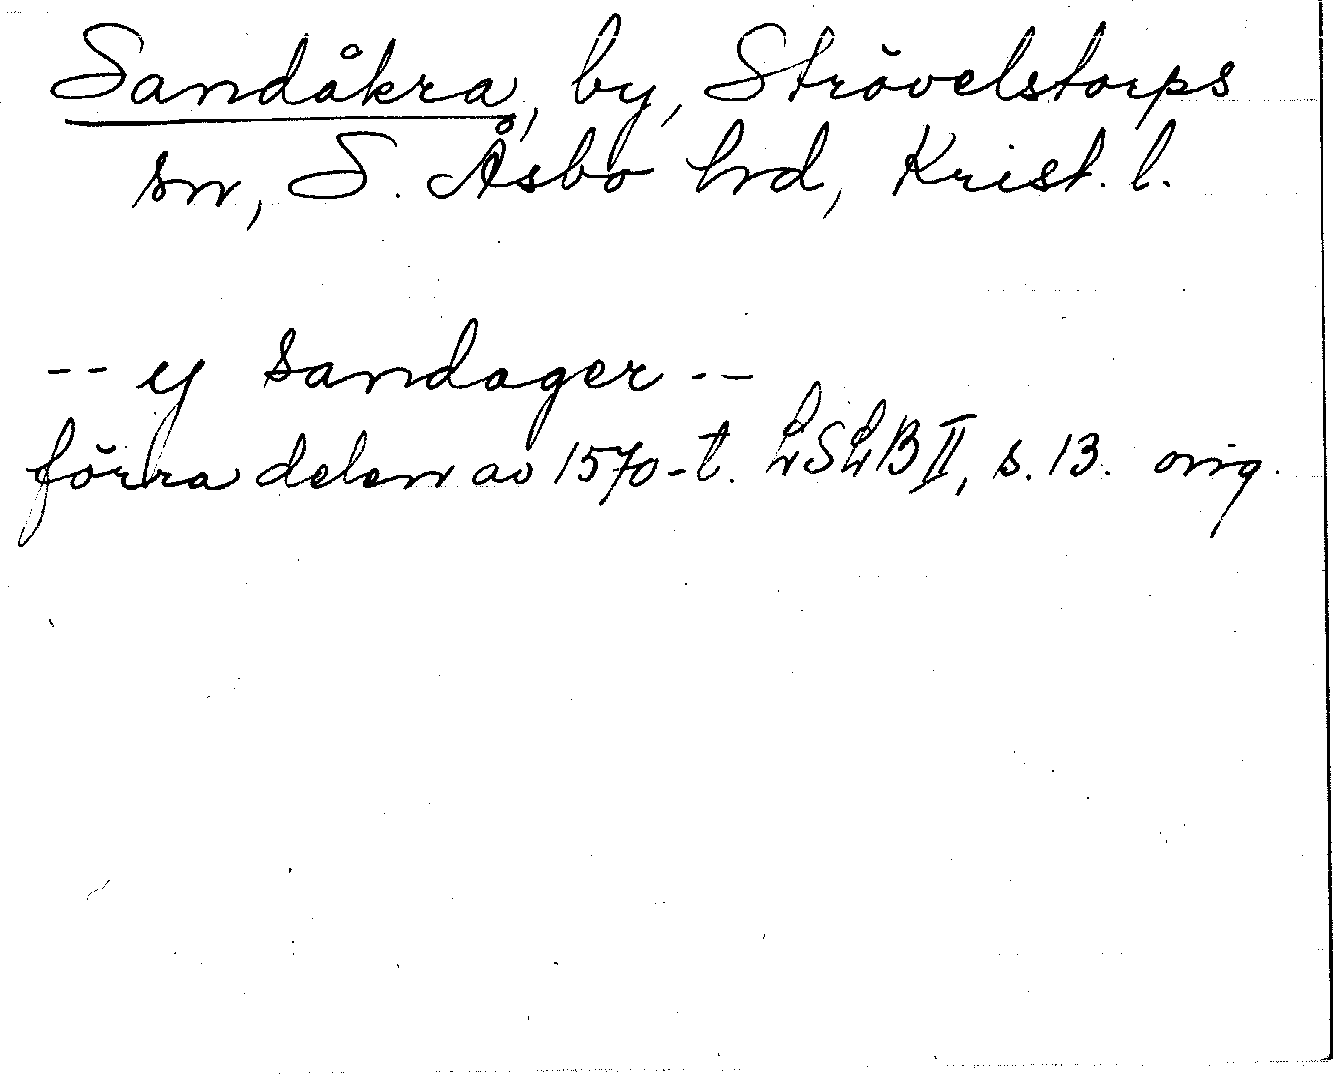 Sandåkra, by, Strövelstorps
sn, S. Åsbo hd, Krist. l.
-- y sandager --
förra delen av 1570-t. LSLB II, s. 13. orig.